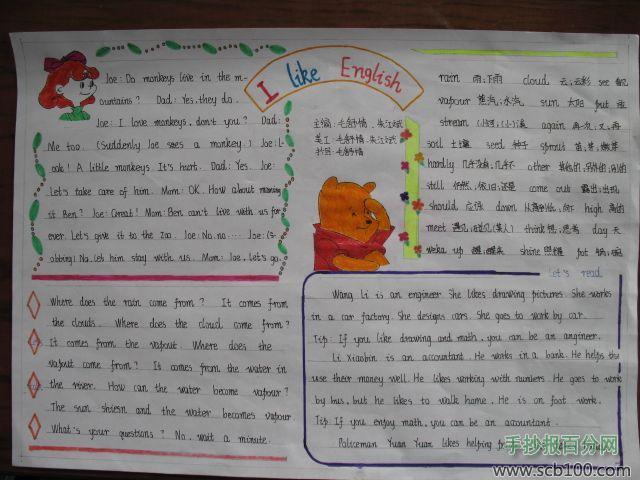 I like English
Joe: Do monkeys live in the m-
ountains? Dad: Yes, they do.
Joe: I love monkeys, don't you? Dad:
Me too. (Suddenly Joe sees a monkey.) Joe: L-
ook! A little monkeys It's hurt. Dad: Yes. Joe:
Let's take care of him. Mom: OK. How about
it Ben? Joe: Great! Mom: Ben can't live with us for
ever. Let's give it to the zoo. Joe: No, no.... Joe: (S-
obbing) No, let him stay with us. Mom: Joe, Let's go.
主编: 毛舒情、朱江斌
美工: 毛舒情、朱江斌
书写: 毛舒情
rain 雨;下雨 cloud 云;云彩 see
vapour 蒸汽;水汽 sun 太阳 put
stream (小)河;(小)溪 again 再一次;又;再
soil 土壤 seed 种子 sprout 苗;芽;嫩芽
hardly 几乎没有;几乎不 other 其他的;另外的;别的
still 仍然;依旧;还是 come out 露出;出现
should 应该 down 从高到低;向下 high 高的
meet 遇见;碰见(某人) think 想;思考 day 天
weka up 醒;醒来 shine 照耀 pot 锅;
Let's read
Where does the rain come from? It comes from
the clouds. Where does the cloud come from?
It comes from the vapout. Where does the
vapout come from? It comes from the water in
the river. How can the water become vapour?
The sun shiesn and the water becomes vapour
What's your questions? No, wait a minute.
Wang Li is an engineer. She likes drawing pictures. She works
in a car factory. She designs cars. She goes to work by car.
Tip: If you like drawing and math, you can be an angineer.
Li Xiaobin is an accountant. He works in a bank. He helps the
use their money well. He likes working with numbers. He goes to work
by bus, but he likes to walk home. He is on foot work.
Tip: If you enjoy math, you can be an accountant.
Policeman Yuan Yuan likes helping
手抄报百分网
www.scb100.com